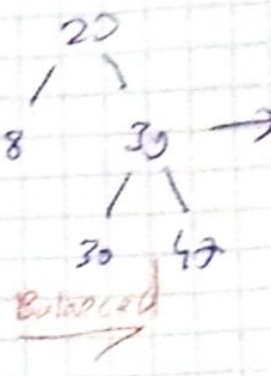 20
8 39
30 47
Balanced